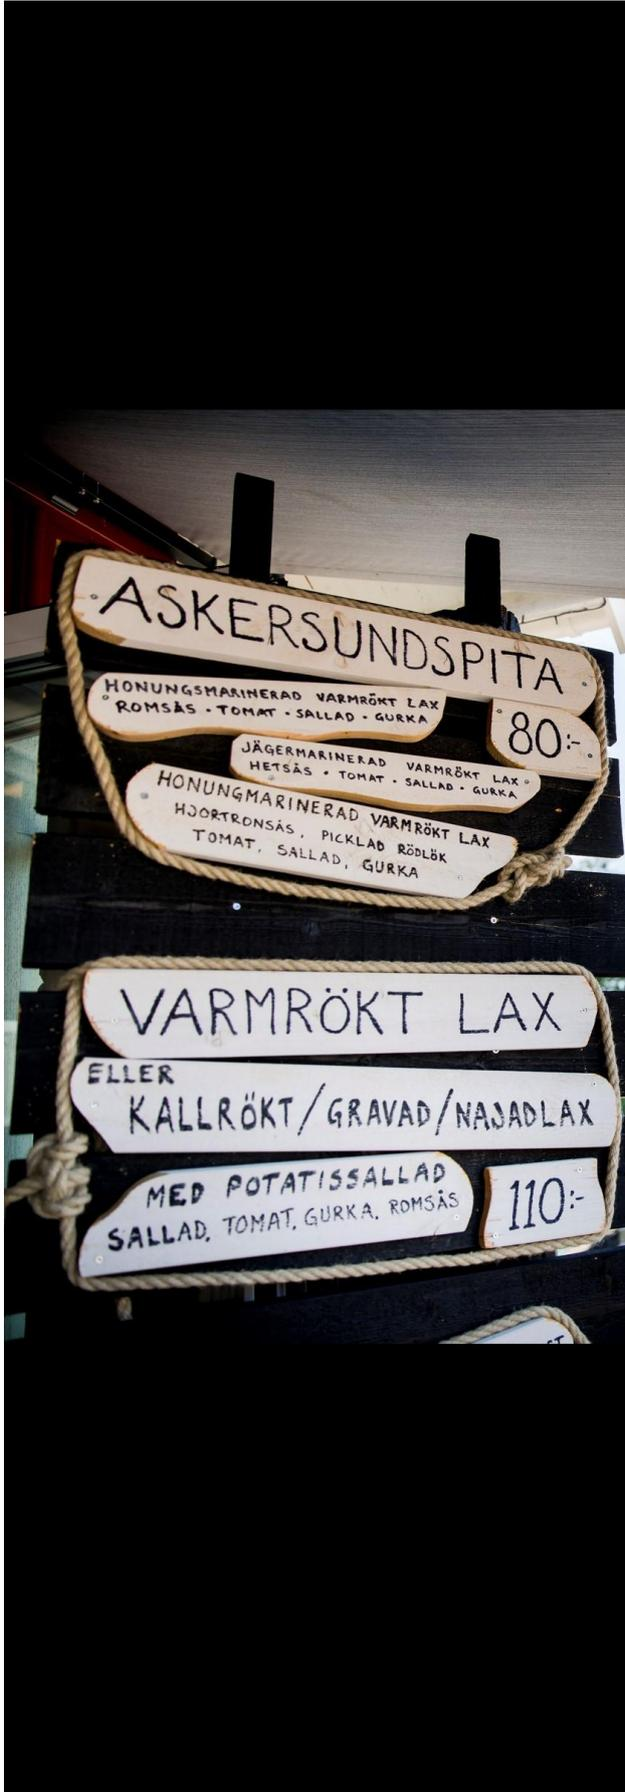 ASKERSUNDSPITA
HONUNGSMARINERAD VARMRÖKT LAX
ROMSÅS · TOMAT · SALLAD · GURKA
80:-
JÄGERMARINERAD VARMRÖKT LAX
HETSÅS · TOMAT · SALLAD · GURKA
HONUNGMARINERAD VARMRÖKT LAX
HJORTRONSÅS, PICKLAD RÖDLÖK
TOMAT, SALLAD, GURKA
VARMRÖKT LAX
ELLER
KALLRÖKT/GRAVAD/NAJADLAX
MED POTATISSALLAD
SALLAD, TOMAT, GURKA, ROMSÅS
110:-